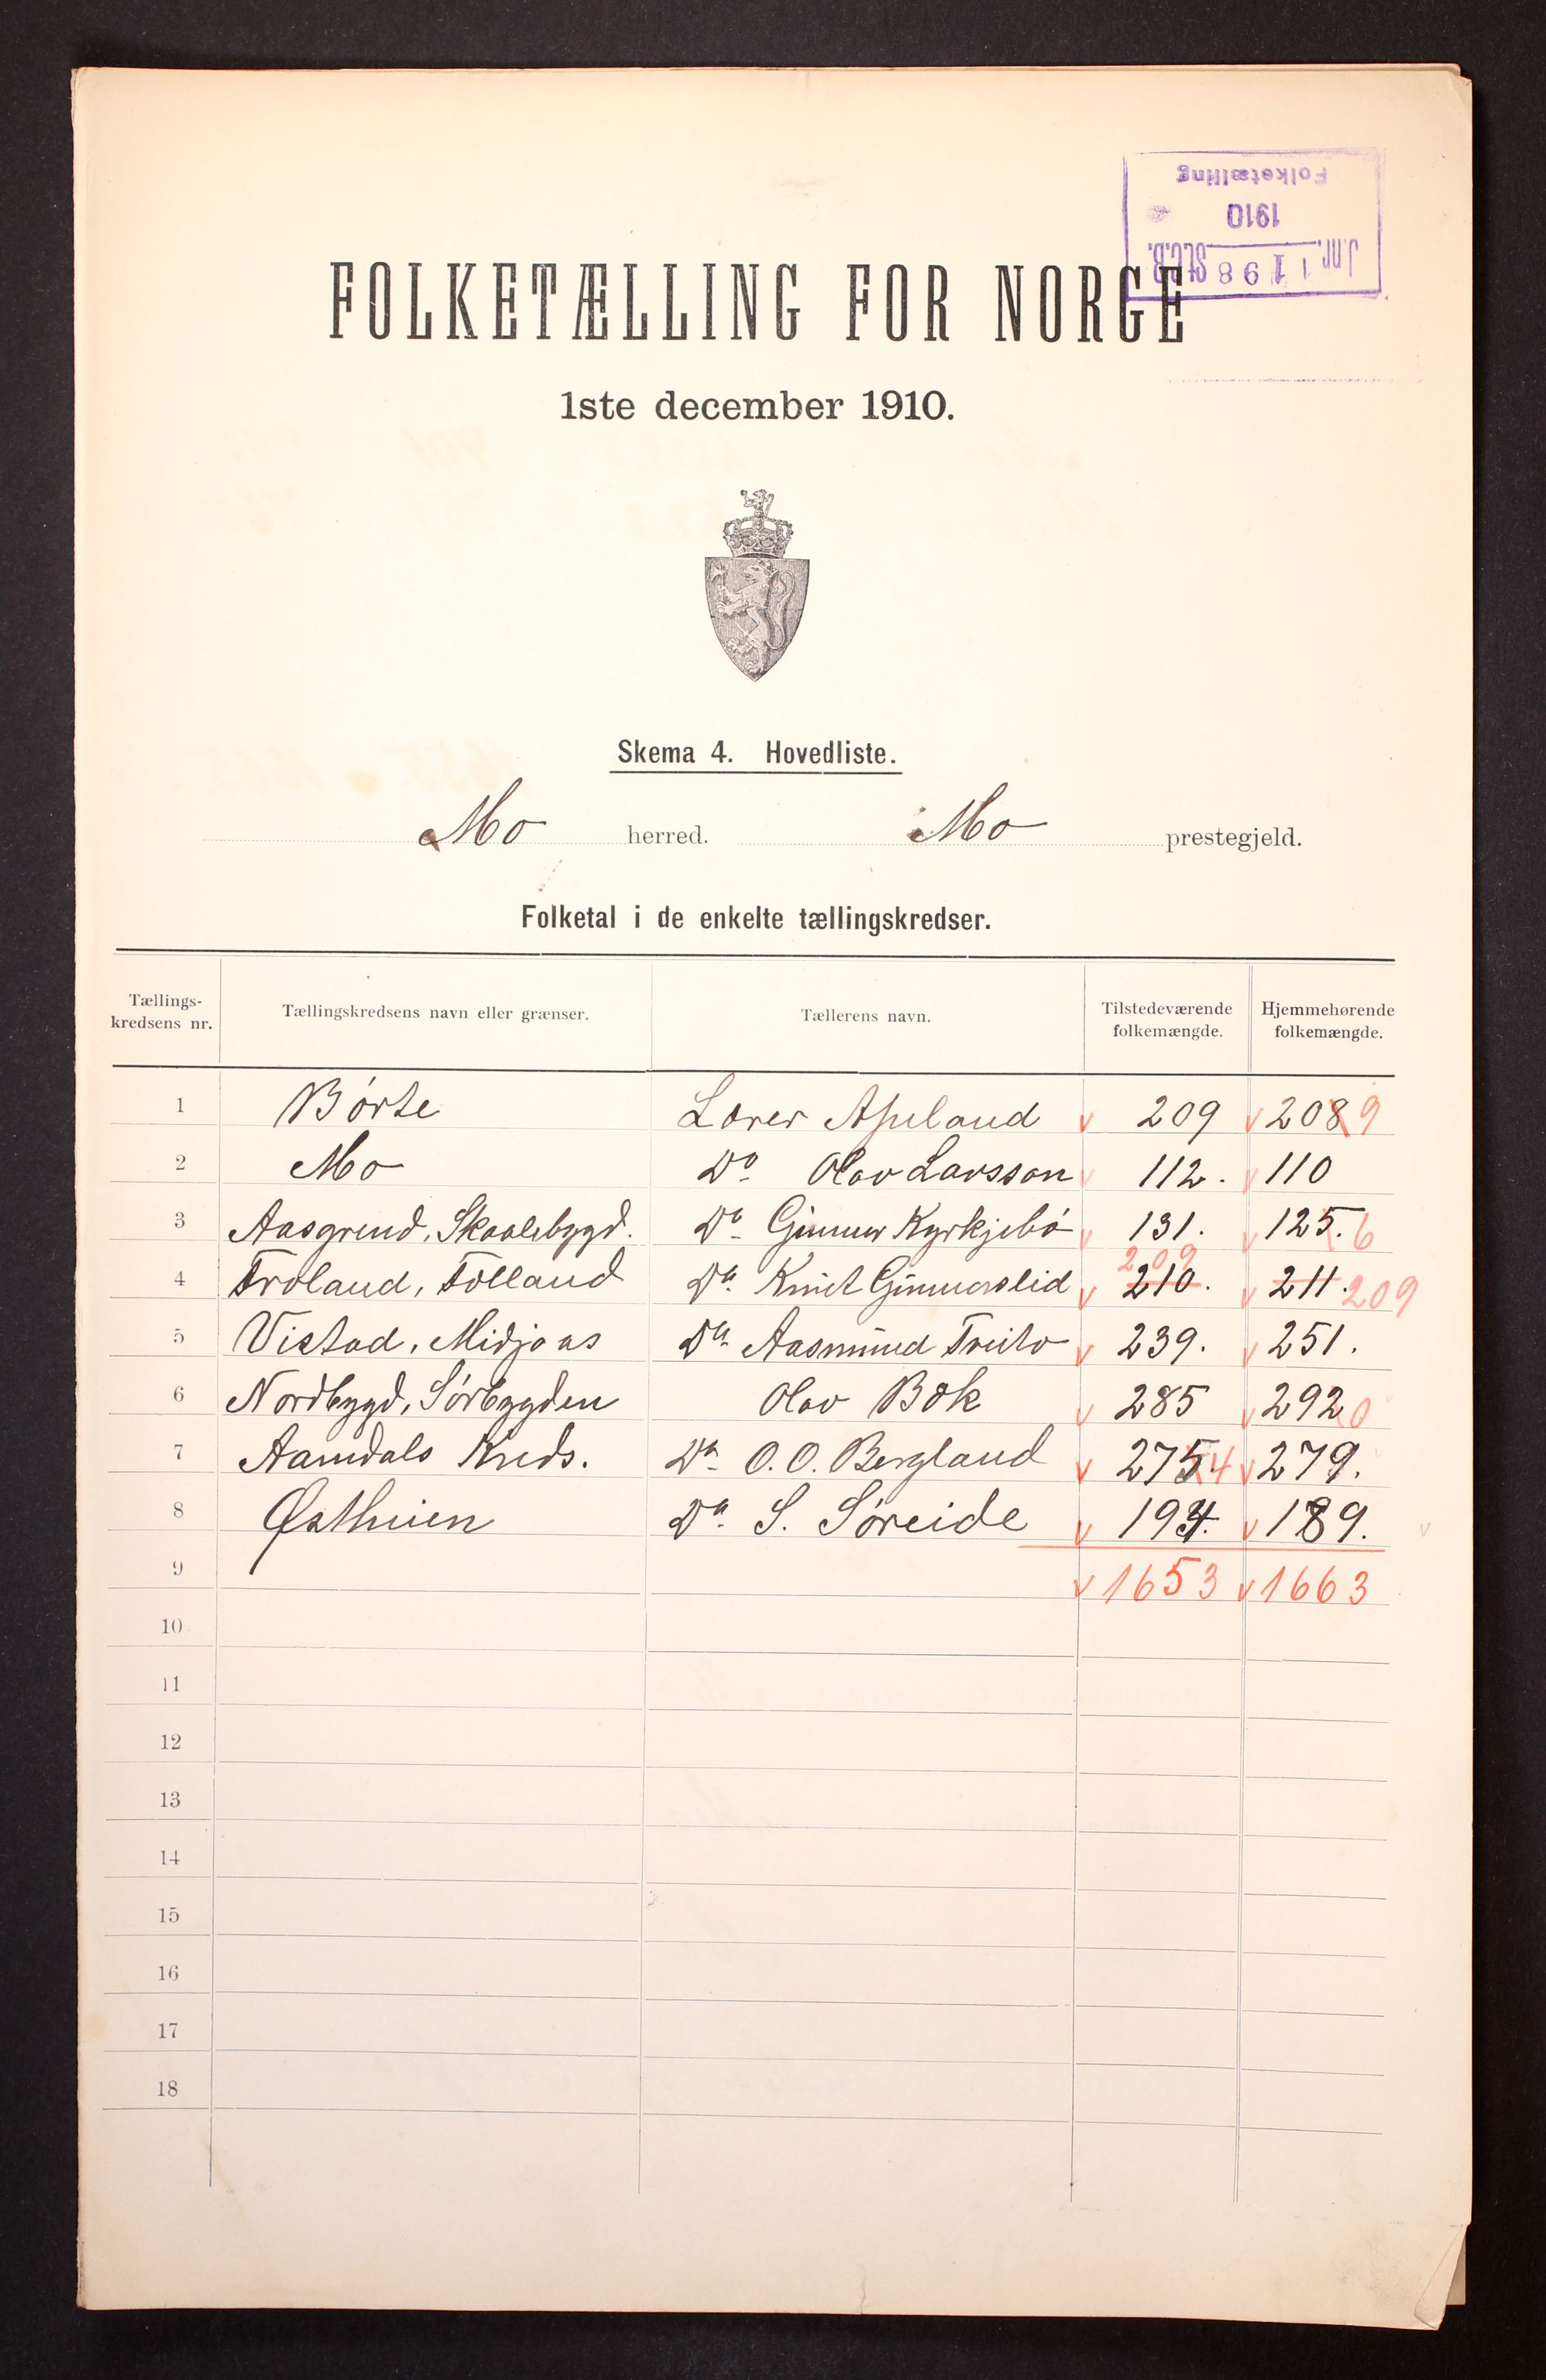 Folketælling
1910
J.nr. 1198 St.C.B.
FOLKETÆLLING FOR NORGE
1ste december 1910.
Skema 4. Hovedliste.
Mo herred. Mo prestegjeld.
Folketal i de enkelte tællingskredser.
Tællings-kredsens nr. Tællingskredsens navn eller grænser. Tællerens navn. Tilstedeværende folkemængde. Hjemmehørende folkemængde.
1 Börte Lærer 209 208 9
2 Mo Do Olav Larsson 112. 110
3 Aasgrend, Skaalebygd. Do Gunnar Kyrkjebö 131. 125. 6
209
4 Froland, Folland Do Knut Gunnarslid 210. 211. 209
5 Vistad, Midjaas Do Aasmund Treito 239. 251.
6 Nordbygd, Sörbygden Olav Bøk 285 292 0
7 Aamdals Kreds. Do O. O. Bergland 275. 4 279.
8 Do S. Söreide 194. 189.
9 1653 1663
10
11
12
13
14
15
16
17
18